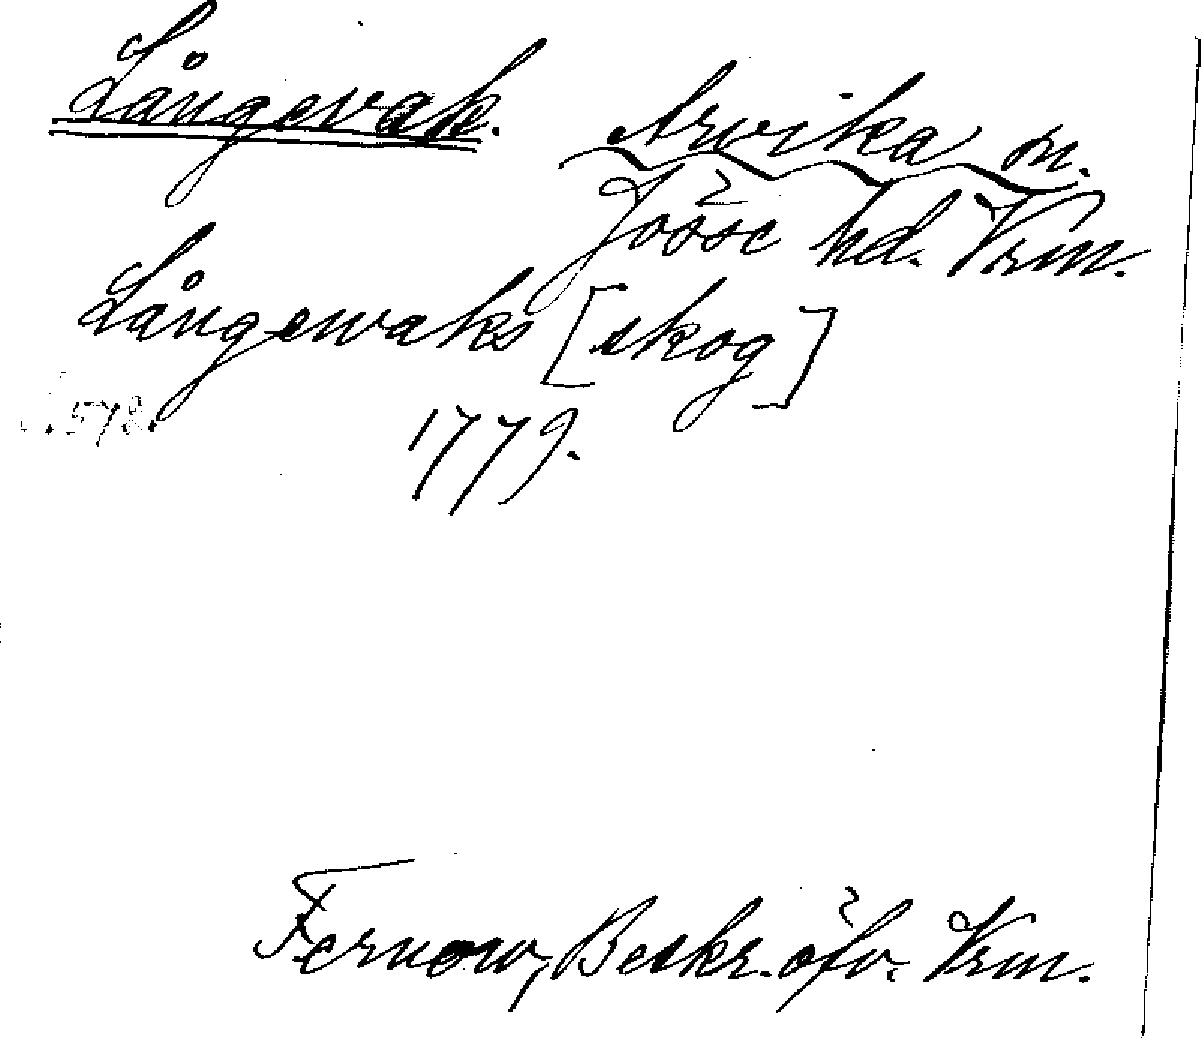 Långevak.
Arvika sn.
Jösse hd. Vrm.
Långewaks [skog]
s. 578.
1779.
Fernow, Beskr. öfv. Vrm.